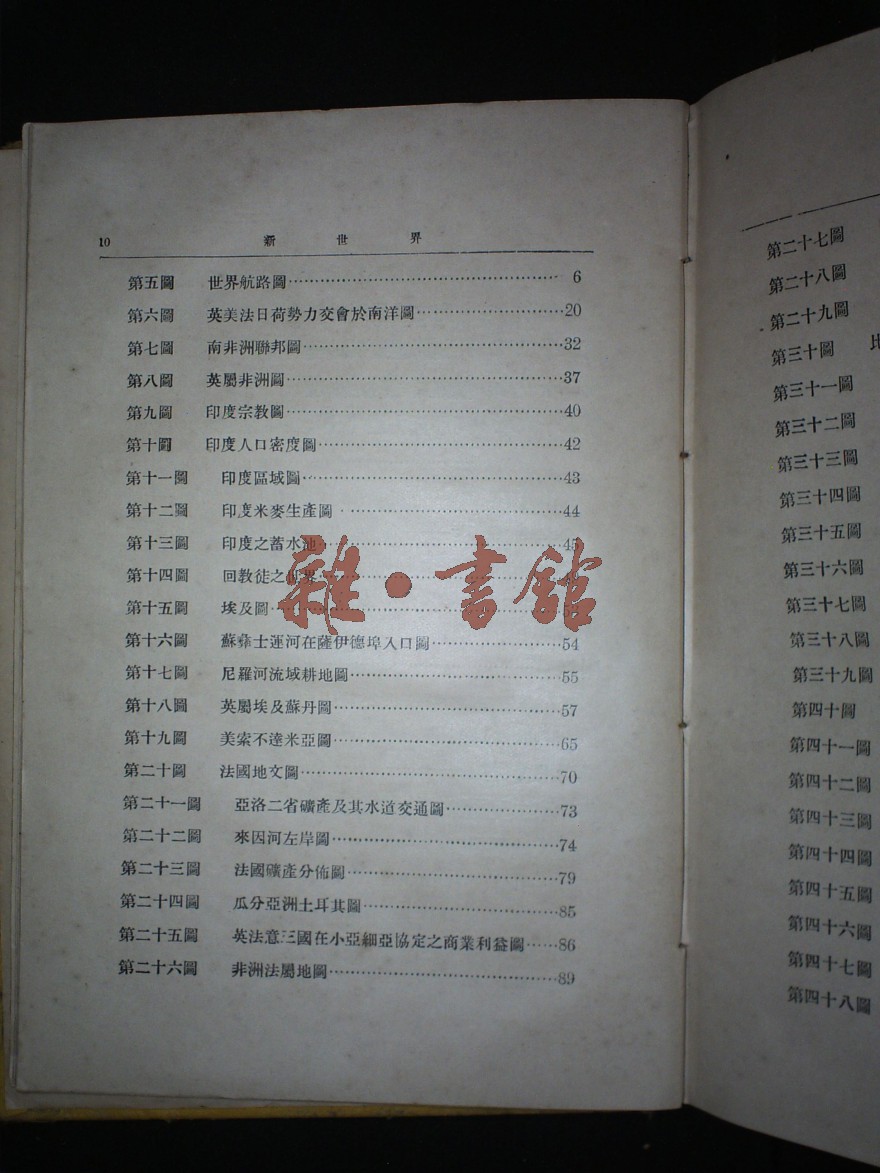 10 新世界
第五圖 世界航路圖 6
第六圖 英美法日荷勢力交會於南洋圖 20
第七圖 南非洲聯邦圖 32
第八圖 英屬非洲圖 37
第九圖 印度宗教圖 40
第十圖 印度人口密度圖 42
第十一圖 印度區域圖 43
第十二圖 印度米麥生產圖 44
第十三圖 印度之蓄水池 45
第十四圖 回教徒之世界
第十五圖 埃及圖
第十六圖 蘇彝士運河在薩伊德埠入口圖 54
第十七圖 尼羅河流域耕地圖 55
第十八圖 英屬埃及蘇丹圖 57
第十九圖 美索不達米亞圖 65
第二十圖 法國地文圖 70
第二十一圖 亞洛二省礦產及其水道交通圖 73
第二十二圖 來因河左岸圖 74
第二十三圖 法國礦產分佈圖 79
第二十四圖 瓜分亞洲土耳其圖 85
第二十五圖 英法意三國在小亞細亞協定之商業利益圖 86
第二十六圖 非洲法屬地圖 89
雜·書館
第二十七圖
第二十八圖
第二十九圖
第三十圖 地
第三十一圖
第三十二圖
第三十三圖
第三十四圖
第三十五圖
第三十六圖
第三十七圖
第三十八圖
第三十九圖
第四十圖
第四十一圖
第四十二圖
第四十三圖
第四十四圖
第四十五圖
第四十六圖
第四十七圖
第四十八圖